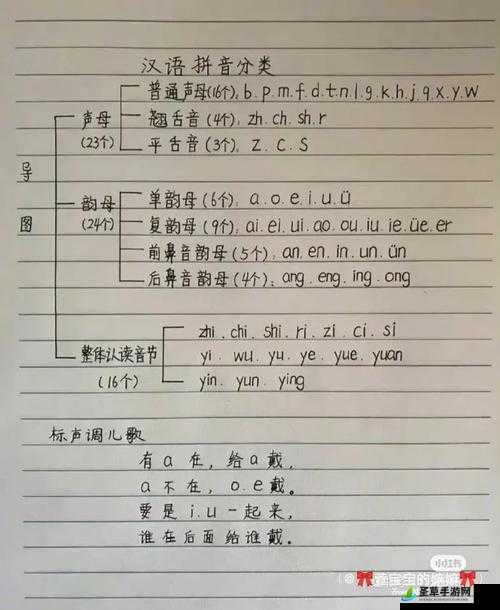 汉语拼音分类
导图
声母
(23个)
普通声母(16个): b.p.m.f.d.t.n.l.g.k.h.j.q.x.y.w
翘舌音(4个): zh.ch.sh.r
平舌音(3个): z.c.s
韵母
(24个)
单韵母(6个): a.o.e.i.u.ü
复韵母(9个): ai.ei.ui.ao.ou.iu.ie.üe.er
前鼻音韵母(5个): an.en.in.un.ün
后鼻音韵母(4个): ang.eng.ing.ong
整体认读音节
(16个)
zhi.chi.shi.ri.zi.ci.si
yi.wu.yu.ye.yue.yuan
yin.yun.ying
标声调儿歌
有a在,给a戴,
a不在,o.e戴。
要是i.u一起来,
谁在后面给谁戴。
小红书
圣草手游网